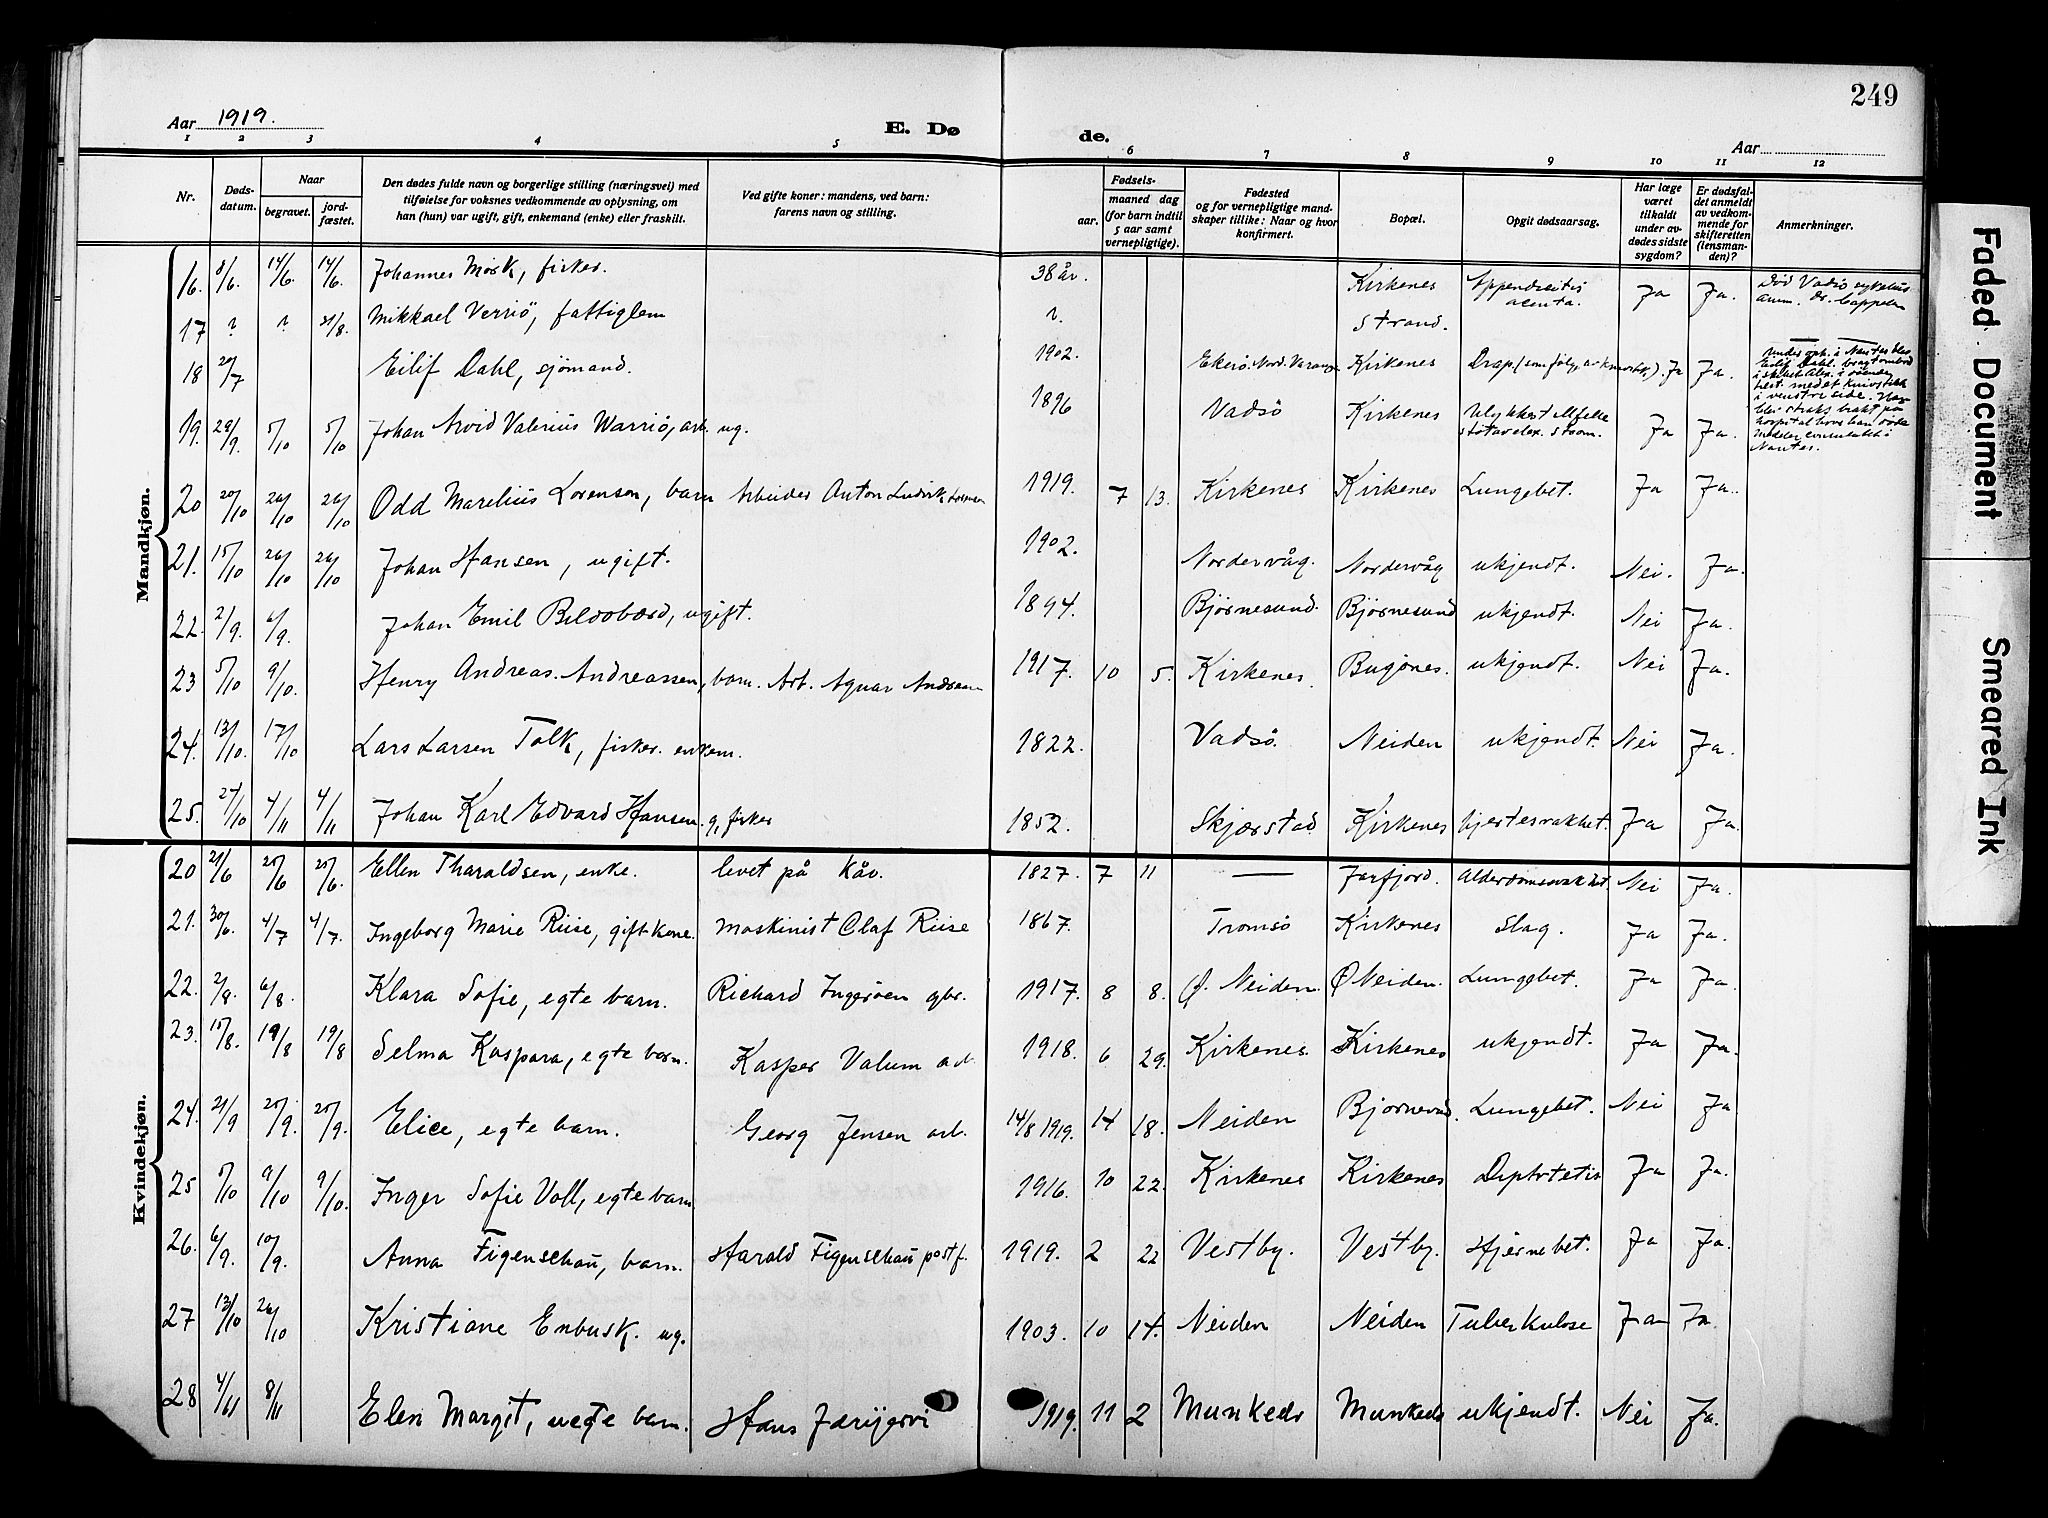 249
Aar 1919.
E. Dø
de.
Aar
1 2 3 4 5 6 7 8 9 10 11 12
Nr.
Døds-
datum.
Naar
begravet.
jord-
fæstet.
Den dødes fulde navn og borgerlige stilling (næringsvei) med
tilføielse for voksnes vedkommende av oplysning, om
han (hun) var ugift, gift, enkemand (enke) eller fraskilt.
Ved gifte koner: mandens, ved barn:
farens navn og stilling.
Fødsels-
aar.
maaned dag
(for barn indtil
5 aar samt
vernepligtige).
Fødested
og for vernepligtige mand-
skaper tillike: Naar og hvor
konfirmert.
Bopæl.
Opgit dødsaarsag.
Har læge
været
tilkaldt
under av-
dødes sidste
sygdom?
Er dødsfal-
det anmeldt
av vedkom-
mende for
skifteretten
(lensman-
den)?
Anmerkninger.
Mandkjøn.
16. 8/6. 14/6. 14/6. Johannes Mørk, fisker. 38 år. Kirkenes Appendicitis acuta. Ja Ja. Død Vadsø sykehus anm. dr. Cappelen
17 ? ? 31/8. Mikkael Verriö, fattiglem ?. Strand.
18 20/7 Eilif Dahl, sjömand. 1902. Ekerö. Nord. Varang. Kirkenes Drap. (som følge av knivstik). Ja Ja.
19. 28/9. 5/10 5/10 Johan Arvid Valerius Warriö, arb. ug. 1896 Vadsö Kirkenes Ulykkestilfelle støt av elex. strøm. Ja Ja.
20 20/10 26/10 26/10 Odd Marelius Lorensen, barn Arbeider Anton Ludvik Lorensen 1919. 7 13. Kirkenes Kirkenes Lungebet. Ja Ja.
21. 15/10 26/10 26/10 Johan Hansen, ugift. 1902. Nordervåg. Nordervåg ukjendt. Nei. Ja.
22. 2/9. 6/9. Johan Emil , ugift. 1894. Bjørnesund. Bjørnesund ukjendt. Nei Ja.
23 5/10 9/10. Henry Andreas. Andreassen, barn. Arb. Agnar Andreasen 1917. 10 5. Kirkenes. Bugönes. ukjendt. Nei Ja.
24. 13/10. 17/10 Lars Larsen Tolk, fisker. enkem. 1822. Vadsö. Neiden ukjendt. Nei Ja.
25. 27/10 4/11 4/11 Johan Karl Edvard Hansen. g, fisker 1852. Skjærstad. Kirkenes hjertesvakhet. Ja Ja.
Kvindekjøn.
20 21/6 25/6 25/6. Ellen Tharaldsen, enke. levet på kåv. 1827. 7 11 — Jarfjord. Alderdomssvakhet Nei Ja.
21. 30/6. 4/7 4/7. Ingeborg Marie Riise, gift kone. maskinist Olaf Riise 1867. Tromsö Kirkenes Slag. Ja Ja.
22. 2/8. 6/8. Klara Sofie, egte barn. Richard gbr. 1917. 8 8. Ø. Neiden. Ø Neiden. Lungebet. Ja Ja.
23. 15/8. 19/8 19/8 Selma Kaspara, egte barn. Kasper Valum arb. 1918. 6 29. Kirkenes. Kirkenes ukjendt. Ja Ja.
24. 21/9 25/9. 25/9. Elice, egte barn. Georg Jensen arb. 14/8 1919. 14 18. Neiden Bjørnevad. Lungebet. Nei Ja
25 5/10 9/10 9/10. Inger Sofie Voll, egte barn 1916. 10 22. Kirkenes Kirkenes Diphtetis Ja Ja.
26. 6/9. 10/9. Anna Figenschau, barn. Harald Figenschau postf. 1919. 2 22 Vestby. Vestby. Hjernebet. Ja Ja.
27 13/10 26/10 Kristiane Enbusk. ug. 1903. 10 14. Neiden Neiden Tuberkulose Ja Ja.
28 4/11 8/11 Elen Margit, uegte barn. Hans 1919. 11 2 Munkeds Munkeds ukjendt. Nei Ja.
Faded Document
Smeared Ink